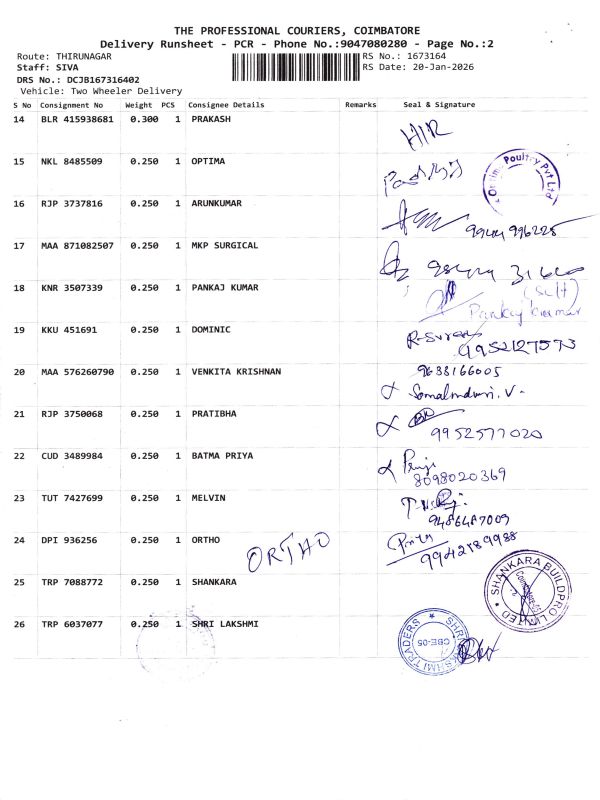 THE PROFESSIONAL COURIERS, COIMBATORE
Delivery Runsheet - PCR - Phone No.:9047080280 - Page No.:2
Route: THIRUNAGAR RS No.: 1673164
Staff: SIVA RS Date: 20-Jan-2026
DRS No.: DCJB167316402
Vehicle: Two Wheeler Delivery
S No Consignment No Weight PCS Consignee Details Remarks Seal & Signature
14 BLR 415938681 0.300 1 PRAKASH
15 NKL 8485509 0.250 1 OPTIMA
Poultry Pvt Ltd
16 RJP 3737816 0.250 1 ARUNKUMAR
17 MAA 871082507 0.250 1 MKP SURGICAL
18 KNR 3507339 0.250 1 PANKAJ KUMAR
(Self)
Pankaj Kumar
19 KKU 451691 0.250 1 DOMINIC
9952127573
20 MAA 576260790 0.250 1 VENKITA KRISHNAN 9638166005
21 RJP 3750068 0.250 1 PRATIBHA
9952577020
22 CUD 3489984 0.250 1 BATMA PRIYA
8098020369
23 TUT 7427699 0.250 1 MELVIN
9486487009
24 DPI 936256 0.250 1 ORTHO ORTHO
9942189988
25 TRP 7088772 0.250 1 SHANKARA
SHANKARA BUILDPRO LIMITED
26 TRP 6037077 0.250 1 SHRI LAKSHMI
SHRI LAKSHMI TRADERS
CBE-05